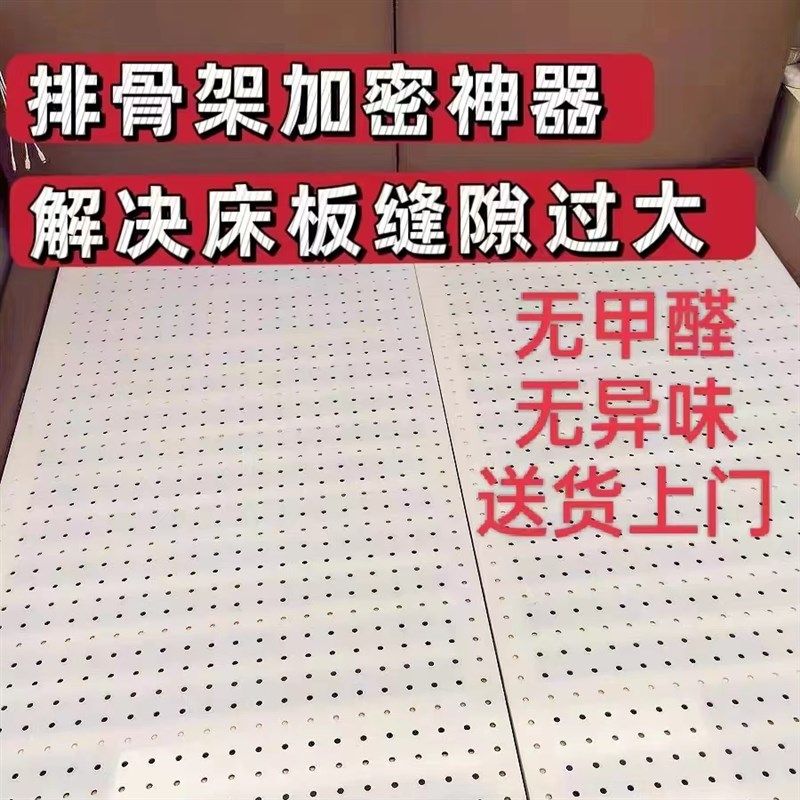 排骨架加密神器
解决床板缝隙过大
无甲醛
无异味
送货上门